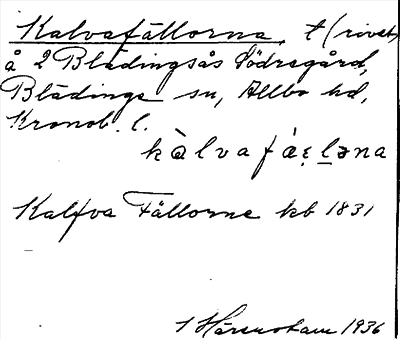 Kalvafällorna, t (rivet)
å 2 Blädingsås Södregård,
Blädinge sn, Allbo hd,
Kronob. l.
kàlvafáɛ̣ləna
Kalfva Fällorne kb 1831
1936